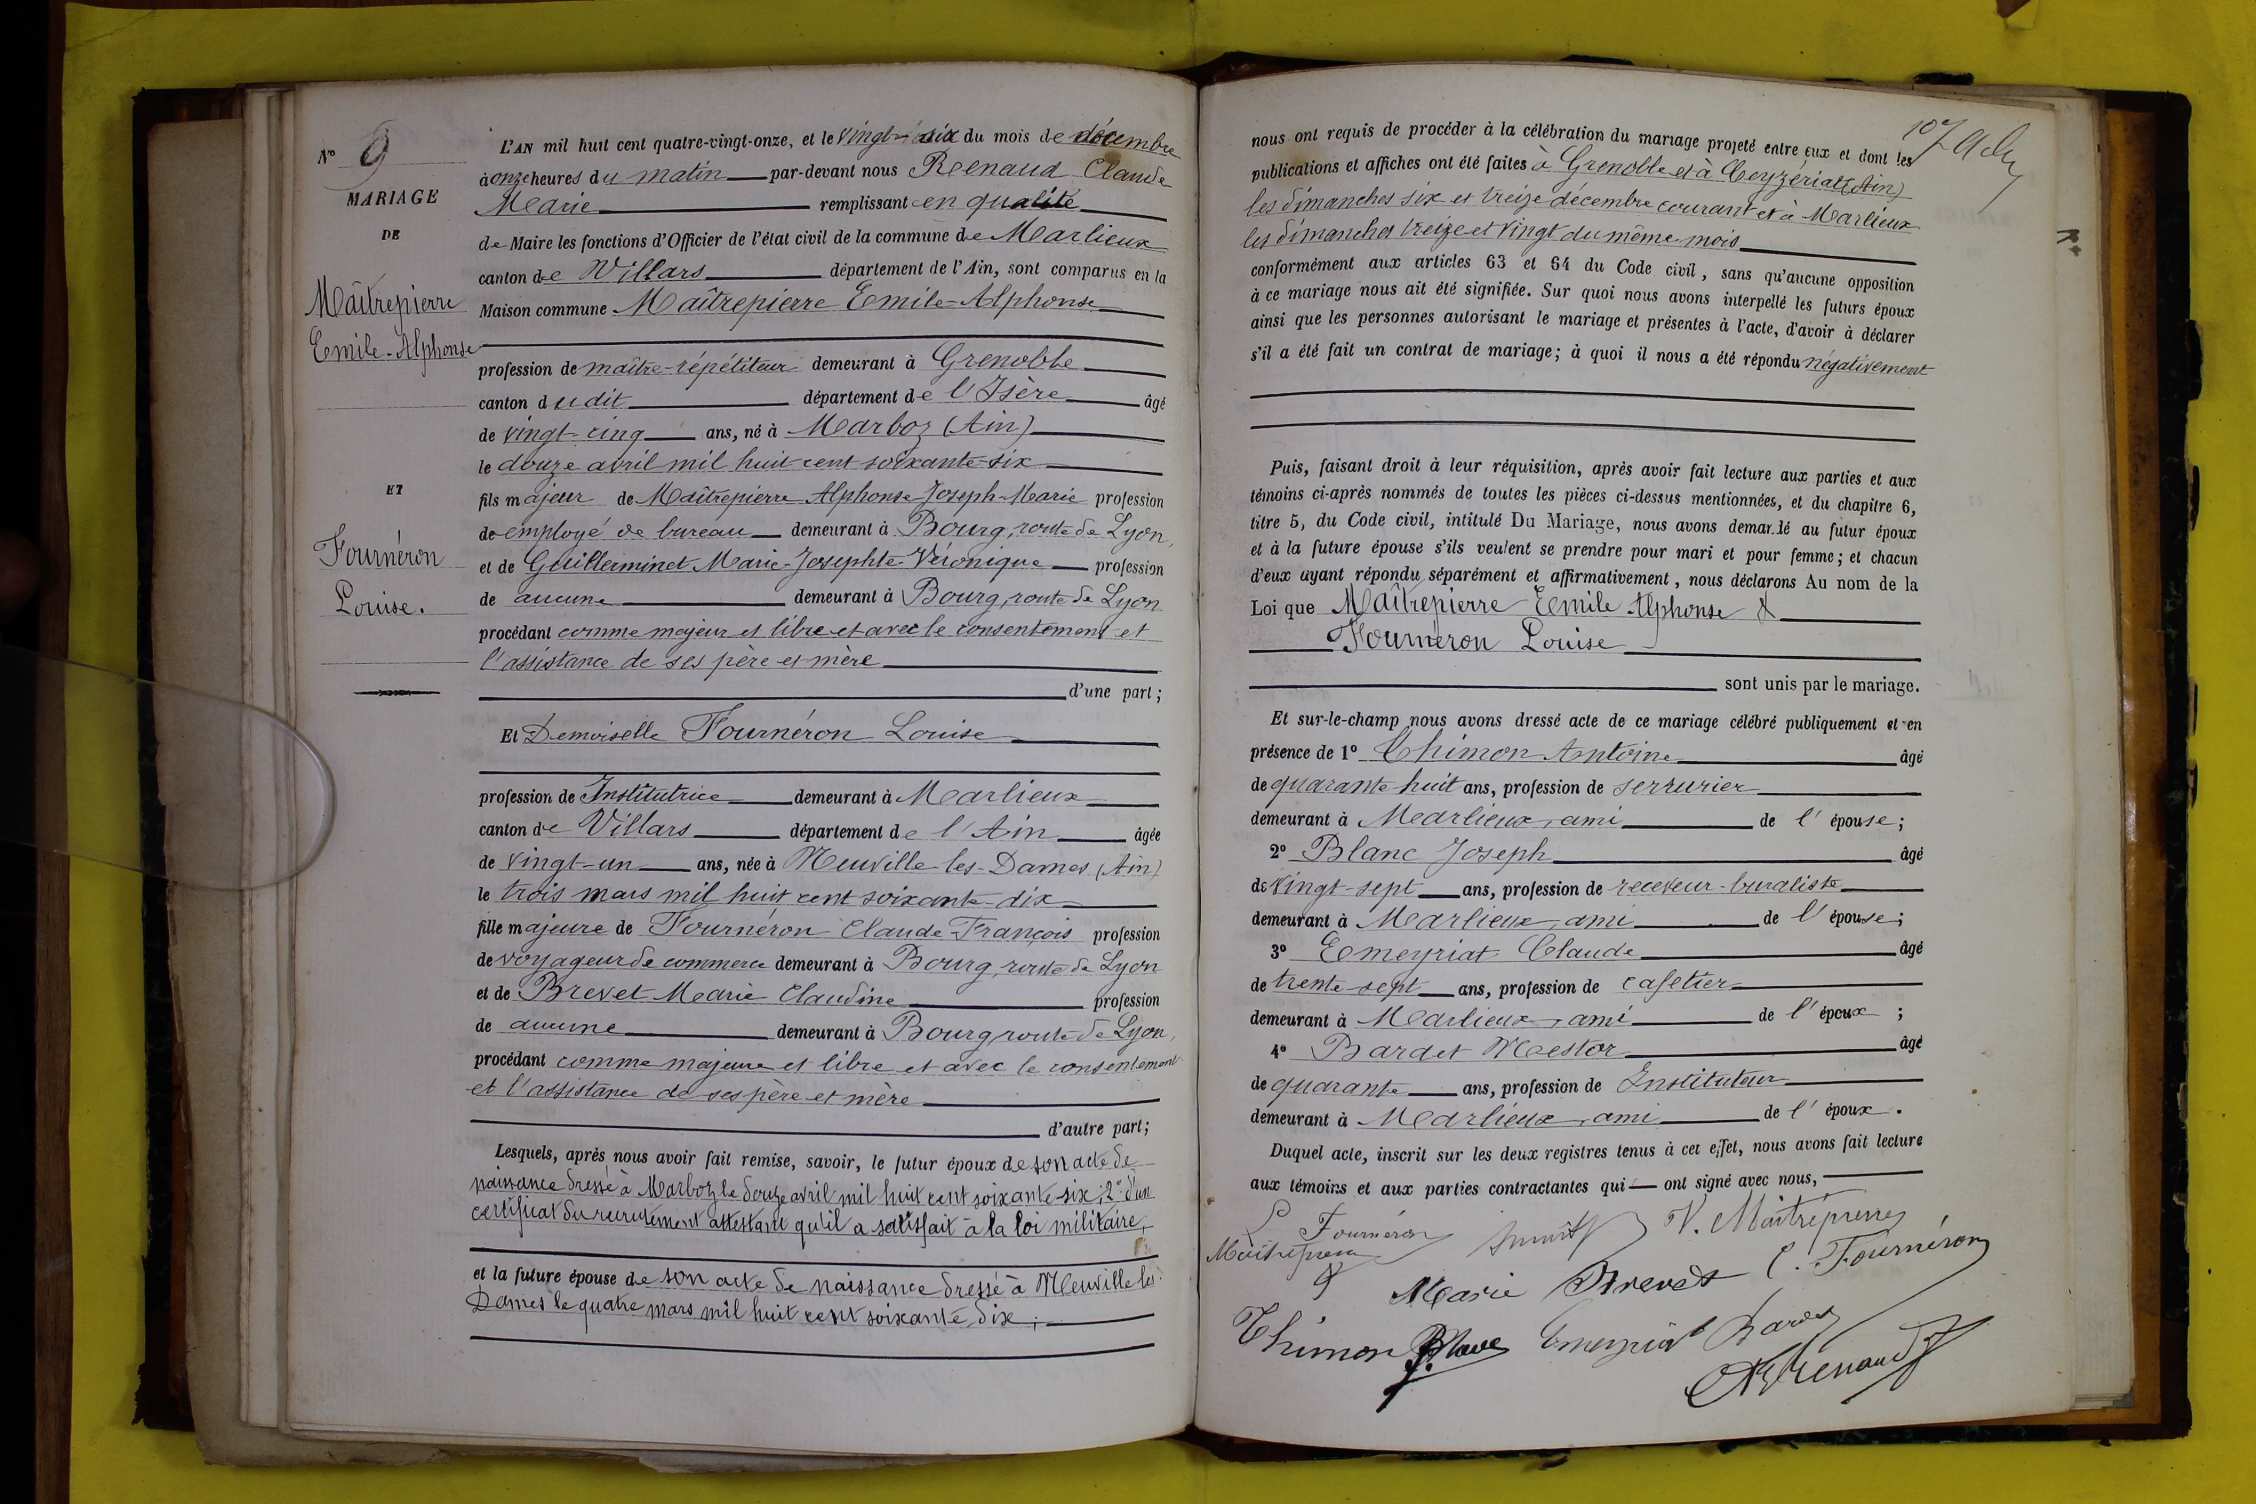 N° 9
MARIAGE
DE
Maîtrepierre
Emile-Alphonse
ET
Fournéron
Louise.
L'AN mil huit cent quatre-vingt-onze, et le vingt-six du mois de décembre
à onze heures du matin par-devant nous Renaud Claude
Marie remplissant en qualité
de Maire les fonctions d'Officier de l'état civil de la commune de Marlieux
canton de Villars département de l'Ain, sont comparus en la
Maison commune Maîtrepierre Emile-Alphonse
profession de maître-répétiteur demeurant à Grenoble
canton dudit département de l'Isère âgé
de vingt-cinq ans, né à Marboz (Ain)
le douze avril mil huit cent soixante-six
fils majeur de Maîtrepierre Alphonse-Joseph-Marie profession
de employé de bureau demeurant à Bourg, route de Lyon,
et de Guillerminet Marie-Josephte-Véronique profession
de aucune demeurant à Bourg, route de Lyon
procédant comme majeur et libre et avec le consentement et
l'assistance de ses père et mère
d'une part;
Et Demoiselle Fournéron Louise
profession de Institutrice demeurant à Marlieux
canton de Villars département de l'Ain âgée
de vingt-un ans, née à Neuville-les-Dames (Ain)
le trois mars mil huit cent soixante-dix
fille majeure de Fournéron Claude-François profession
de voyageur de commerce demeurant à Bourg, route de Lyon
et de Brevet Marie Claudine profession
de aucune demeurant à Bourg route de Lyon,
procédant comme majeure et libre et avec le consentement
et l'assistance de ses père et mère
d'autre part;
Lesquels, après nous avoir fait remise, savoir, le futur époux de son acte de
naissance dressé à Marboz le douze avril mil huit cent soixante-six; 2° d'un
certificat du recrutement attestant qu'il a satisfait à la loi militaire,
et la future épouse de son acte de naissance dressé à Neuville les
Dames le quatre mars mil huit cent soixante dix;
107
nous ont requis de procéder à la célébration du mariage projeté entre eux et dont les
publications et affiches ont été faites à Grenoble et à Ceyzériat (Ain)
les dimanches six et treize décembre courant et à Marlieux
les dimanches treize et vingt du même mois
conformément aux articles 63 et 64 du Code civil, sans qu'aucune opposition
à ce mariage nous ait été signifiée. Sur quoi nous avons interpellé les futurs époux
ainsi que les personnes autorisant le mariage et présentes à l'acte, d'avoir à déclarer
s'il a été fait un contrat de mariage; à quoi il nous a été répondu négativement
Puis, faisant droit à leur réquisition, après avoir fait lecture aux parties et aux
témoins ci-après nommés de toutes les pièces ci-dessus mentionnées, et du chapitre 6,
titre 5, du Code civil, intitulé Du Mariage, nous avons demandé au futur époux
et à la future épouse s'ils veulent se prendre pour mari et pour femme; et chacun
d'eux ayant répondu séparément et affirmativement, nous déclarons Au nom de la
Loi que Maîtrepierre Emile Alphonse &
Fournéron Louise
sont unis par le mariage.
Et sur-le-champ nous avons dressé acte de ce mariage célébré publiquement et en
présence de 1° Thimon Antoine âgé
de quarante-huit ans, profession de serrurier
demeurant à Marlieux, ami de l'épouse;
2° Blanc Joseph âgé
de vingt-sept ans, profession de receveur-buraliste
demeurant à Marlieux, ami de l'épouse;
3° Emeyriat Claude âgé
de trente-sept ans, profession de cafetier
demeurant à Marlieux, ami de l'époux;
4° Bardet Nestor âgé
de quarante ans, profession de Instituteur
demeurant à Marlieux, ami de l'époux.
Duquel acte, inscrit sur les deux registres tenus à cet effet, nous avons fait lecture
aux témoins et aux parties contractantes qui ont signé avec nous,
L Fournéron V. Maitrepierre
Maitrepierre C. Fournéron
Marie Brevet
Thimon J. Blanc Emeyriat Bardet
Renaud